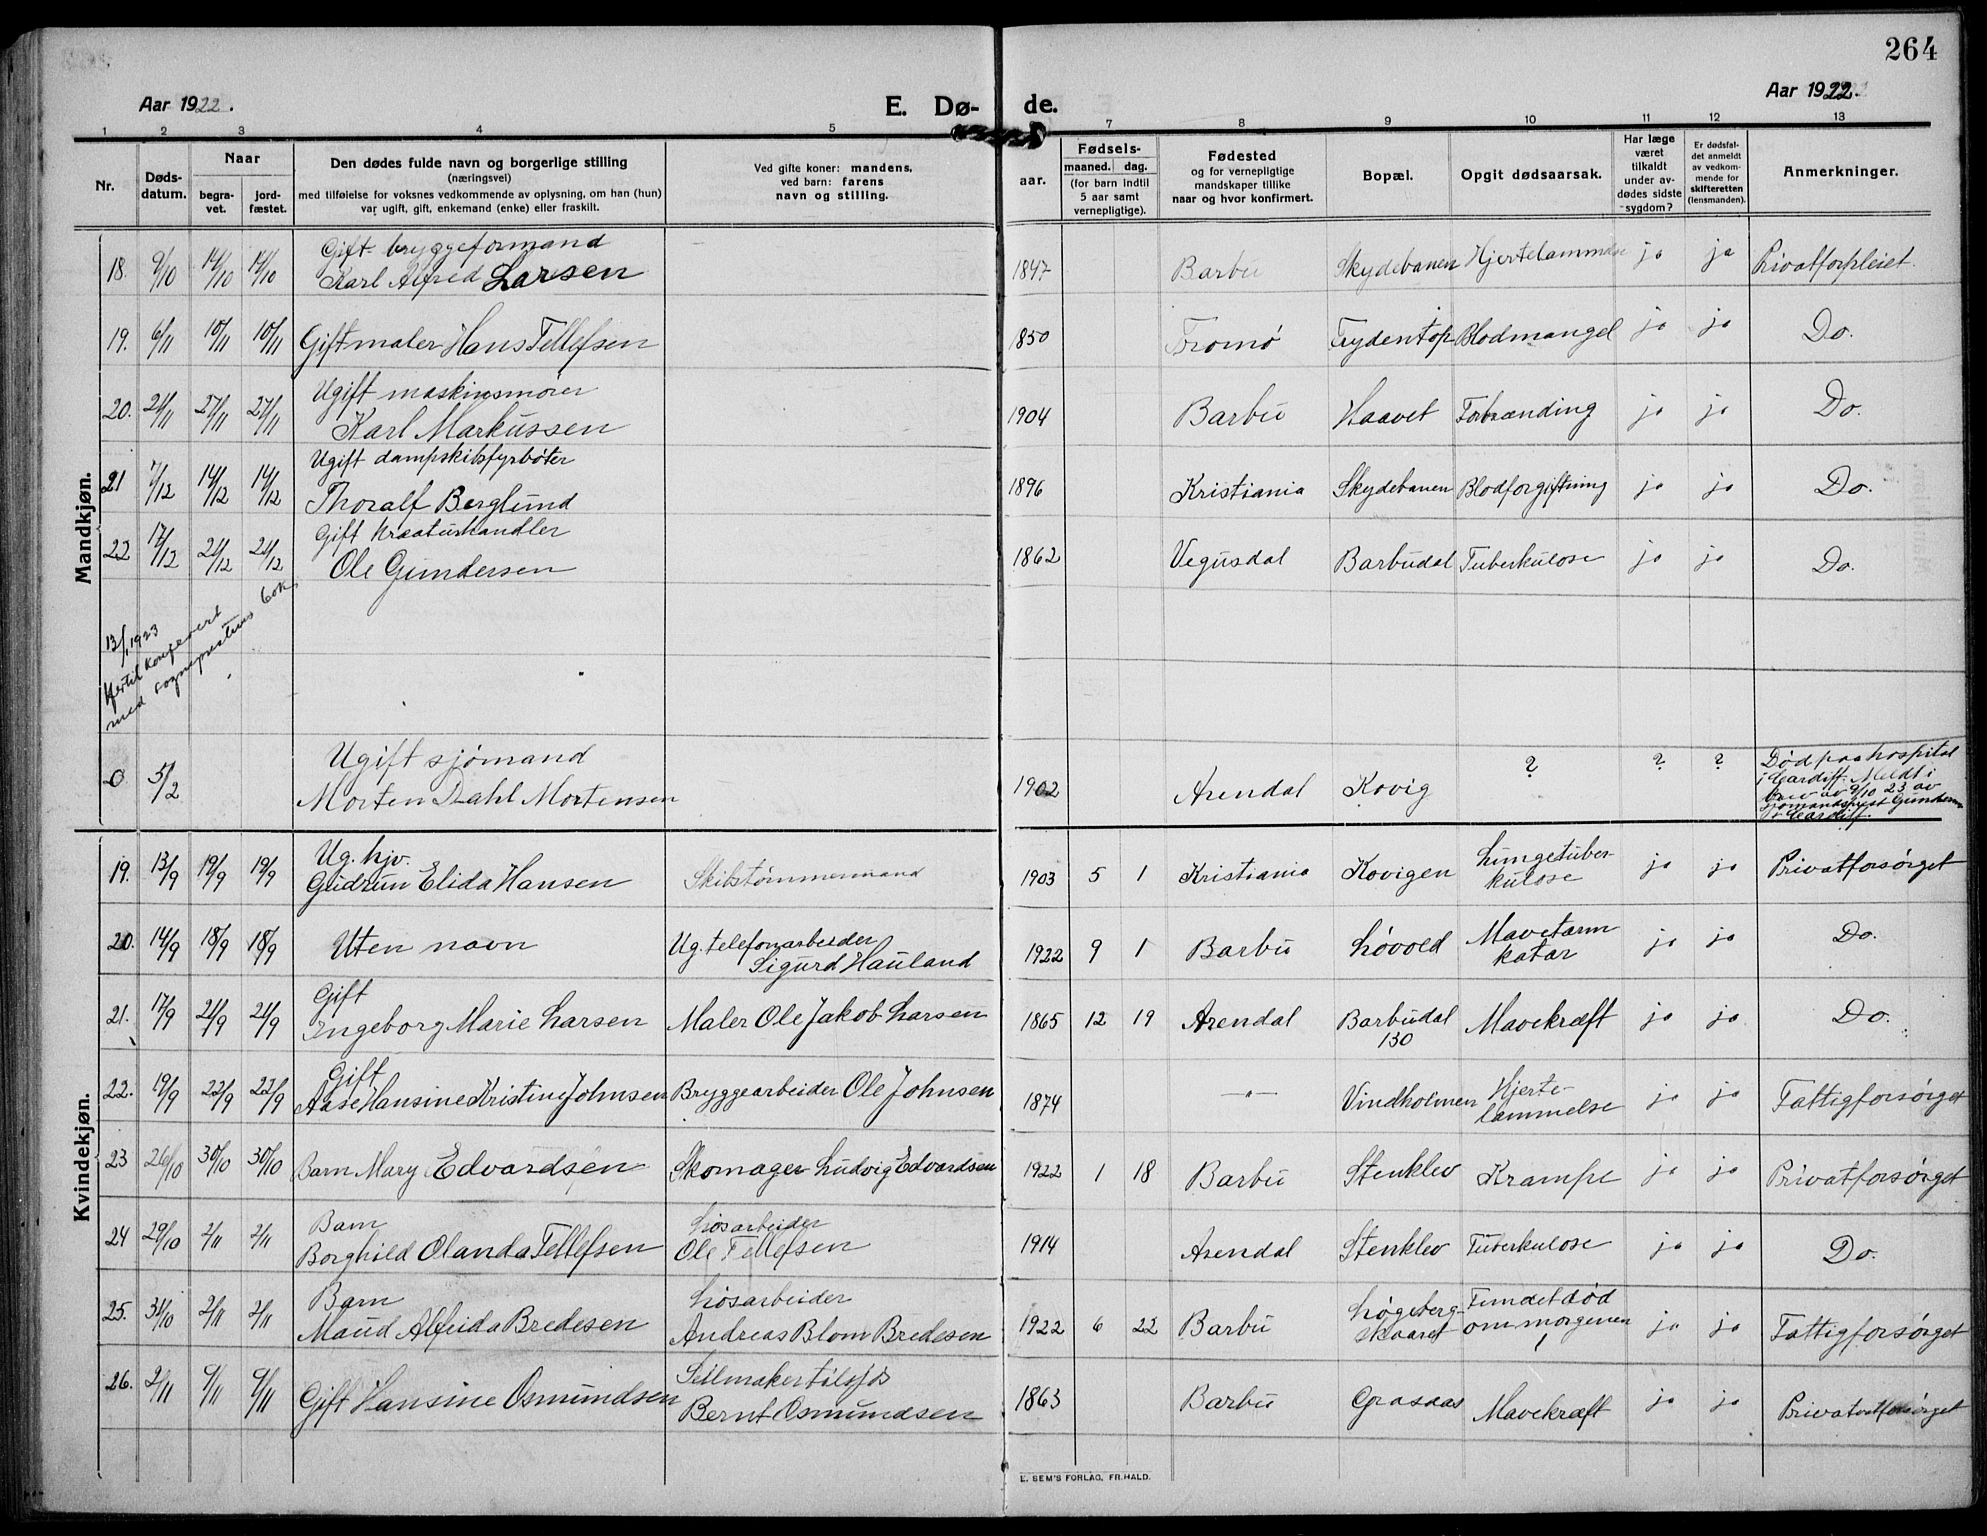 264
Aar 1922. E. Dø- de. Aar 1922.
1 2 3 4 5 7 8 9 10 11 12 13
Nr.
Døds-
datum.
Naar
begra-
vet.
jord-
fæstet.
Den dødes fulde navn og borgerlige stilling
(næringsvei)
med tilføielse for voksnes vedkommende av oplysning, om han (hun)
var ugift, gift, enkemand (enke) eller fraskilt.
Ved gifte koner: mandens,
ved barn: farens
navn og stilling.
Fødsels-
aar.
maaned. dag.
(for barn indtil
5 aar samt
vernepligtige).
Fødested
og for vernepligtige
mandskaper tillike
naar og hvor konfirmert.
Bopæl.
Opgit dødsaarsak.
Har læge
været
tilkaldt
under av-
dødes sidste
sygdom?
Er dødsfal-
det anmeldt
av vedkom-
mende for
skifteretten
(lensmanden).
Anmerkninger.
Mandkjøn.
Gift bryggeformand
18. 9/10 14/10 14/10 Karl Alfred Larsen 1847 Barbu Skydebanen Hjertelammelse ja ja Privatforpleiet.
19. 6/11 10/11 10/11 Gift maler Hans Tellefsen 1850 Tromø Frydentop Blodmangel ja ja Do.
Ugift maskinsmører
20. 21/11 27/11 27/11 Karl Markussen 1904 Barbu Haavet Forbrænding ja ja Do.
Ugift dampskibsfyrbøter
21 7/12 14/12 14/12 Thoralf Berglund 1896 Kristiania Skydebanen Blodforgiftning ja ja Do.
Gift Kreaturhandler
22 17/12 21/12 21/12 Ole Gundersen 1862 Vegusdal Barbudal Tuberkulose ja ja Do.
13/1 1923
Hertil konferert
med sogneprestens bok.
Ugift sjømand
0 5/2 Morten Dahl Mortensen 1902 Arendal Kovig ? ? ? Død paa hospital
i Cardiff. Meldt i
brev av 9/10 23 av
sjømandsprest Gundersen
i Cardiff.
Kvindekjøn.
Ug. hjv.
19. 13/9 19/9 19/9 Gudrun Elida Hansen Skibstømmermand 1903 5 1 Kristiania Kovigen Lungetuber-
kulose ja ja Privatforsørget
20. 14/9 18/9 18/9 Uten navn Ug. telefonarbeider
Sigurd Hauland 1922 9 1 Barbu Løvold Mavetarm
katar ja ja Do.
Gift
21. 17/9 21/9 21/9 Ingeborg Marie Larsen Maler Ole Jakob Larsen 1865 12 19 Arendal Barbudal
130 Mavekræft ja ja Do.
Gift
22. 19/9 22/9 22/9 Aase Hansine Kristine Johnsen Bryggearbeider Ole Johnsen 1874 —"— Vindholmen Hjerte-
lammelse ja ja Fattigforsørget
23 26/10 30/10 30/10 Barn Mary Edvardsen Skomager Ludvig Edvardsen 1922 1 18 Barbu Stenklev Krampe ja ja Privatforsørget
Barn
24 29/10 2/11 2/11 Borghild Olanda Tellefsen Løsarbeider
Ole Tellefsen 1914 Arendal Stenklev Tuberkulose ja ja Do.
Barn
25. 31/10 2/11 2/11 Maud Alfeida Bredesen Løsarbeider
Andreas Blom Bredesen 1922 6 22 Barbu Løgeberg-
skaaret Fundet død
om morgenen ja ja Fattigforsørget
26. 2/11 9/11 9/11 Gift Hansine Osmundsen Seilmaker tilsjøs
Bernt Osmundsen 1863 Barbu Graaaas Mavekræft ja ja Privatforsørget
E. SEM'S FORLAG, FR.HALD.